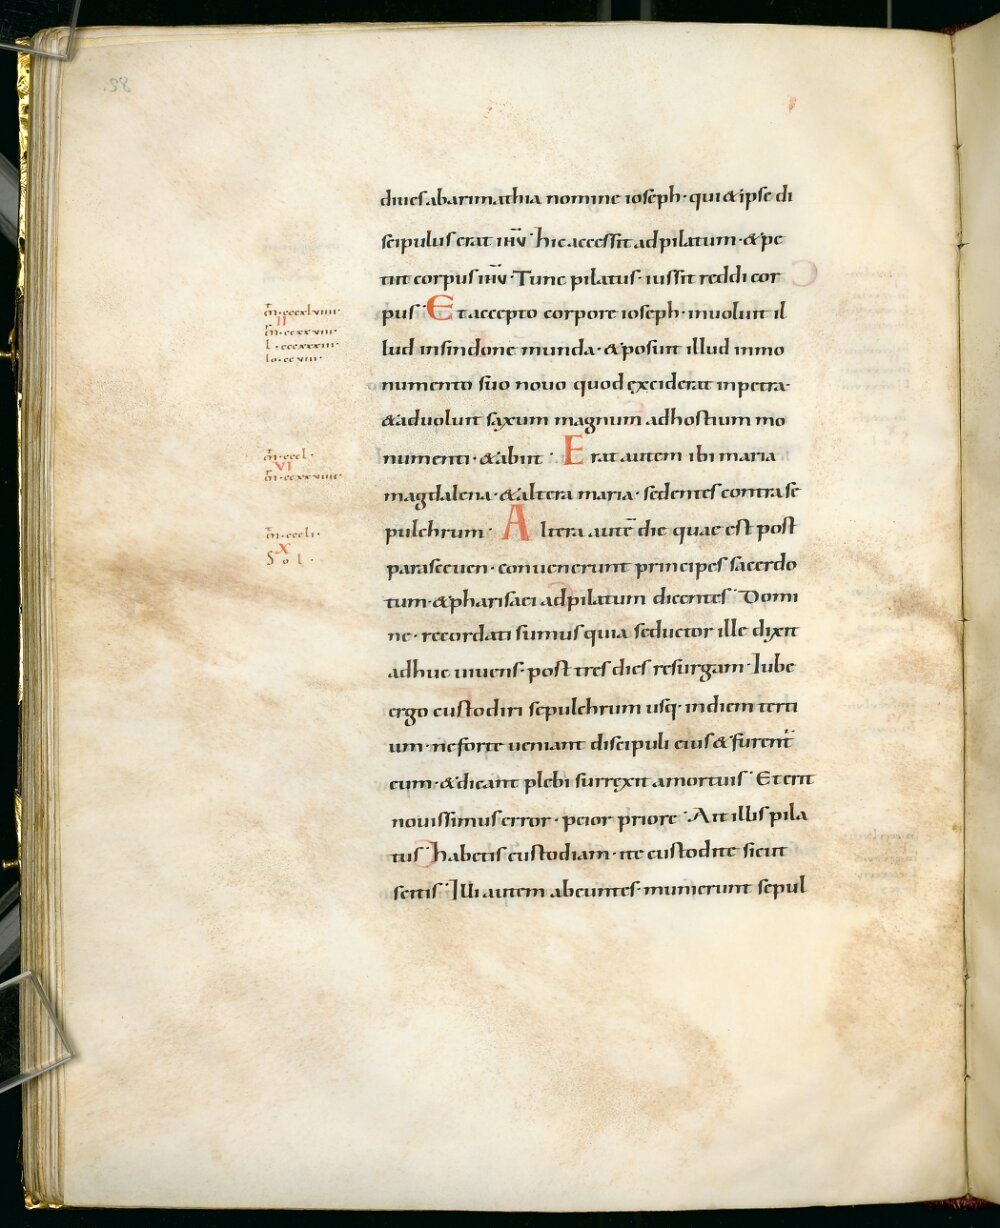 diues abarimathia nomine ioseph · qui & ipse di
scipulus erat ihu · hic accessit ad pilatum · & pe
tiit corpus ihu · Tunc pilatus · iussit reddi cor
pus · Et accepto corpore ioseph · inuoluit il
lud in sindone munda · & posuit illud in mo
numento suo nouo quod exciderat in petra ·
& aduoluit saxum magnum ad hostium mo
numenti · & abiit · Erat autem ibi maria
magdalena · & altera maria · sedentes contra se
pulchrum · Altera autē die quae est post
parasceuen · conuenerunt principes sacerdo
tum · & pharisaei ad pilatum dicentes · Domi
ne · recordati sumus quia seductor ille dixit
adhuc uiuens · post tres dies resurgam · Iube
ergo custodiri sepulchrum usq· in diem terti
um · ne forte ueniant discipuli eius & furent̄
eum · & dicant plebi surrexit a mortuis · Et erit
nouissimus error · peior priore · Ait illis pila
tus · habetis custodiam · ite custodite sicut
scitis · Illi autem abeuntes · munierunt sepul
m̄ · cccxlviiii ·
II
l · cccxxxiii ·
io · ccviii ·
m̄ · cccl ·
VI
m̄ · cccli ·
X
Sol ·